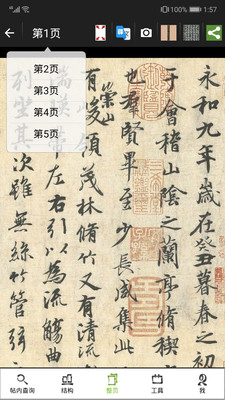 1:57
第1页
第2页
第3页
第4页
第5页
永和九年歲在癸丑暮春之初
于會稽山陰之蘭亭脩稧
也羣賢畢至少長咸集此
有峻領茂林脩竹又有清流
崇山
帶左右引以為流觴曲
列坐其次雖無絲竹管弦
帖内查询
结构
整页
工具
我